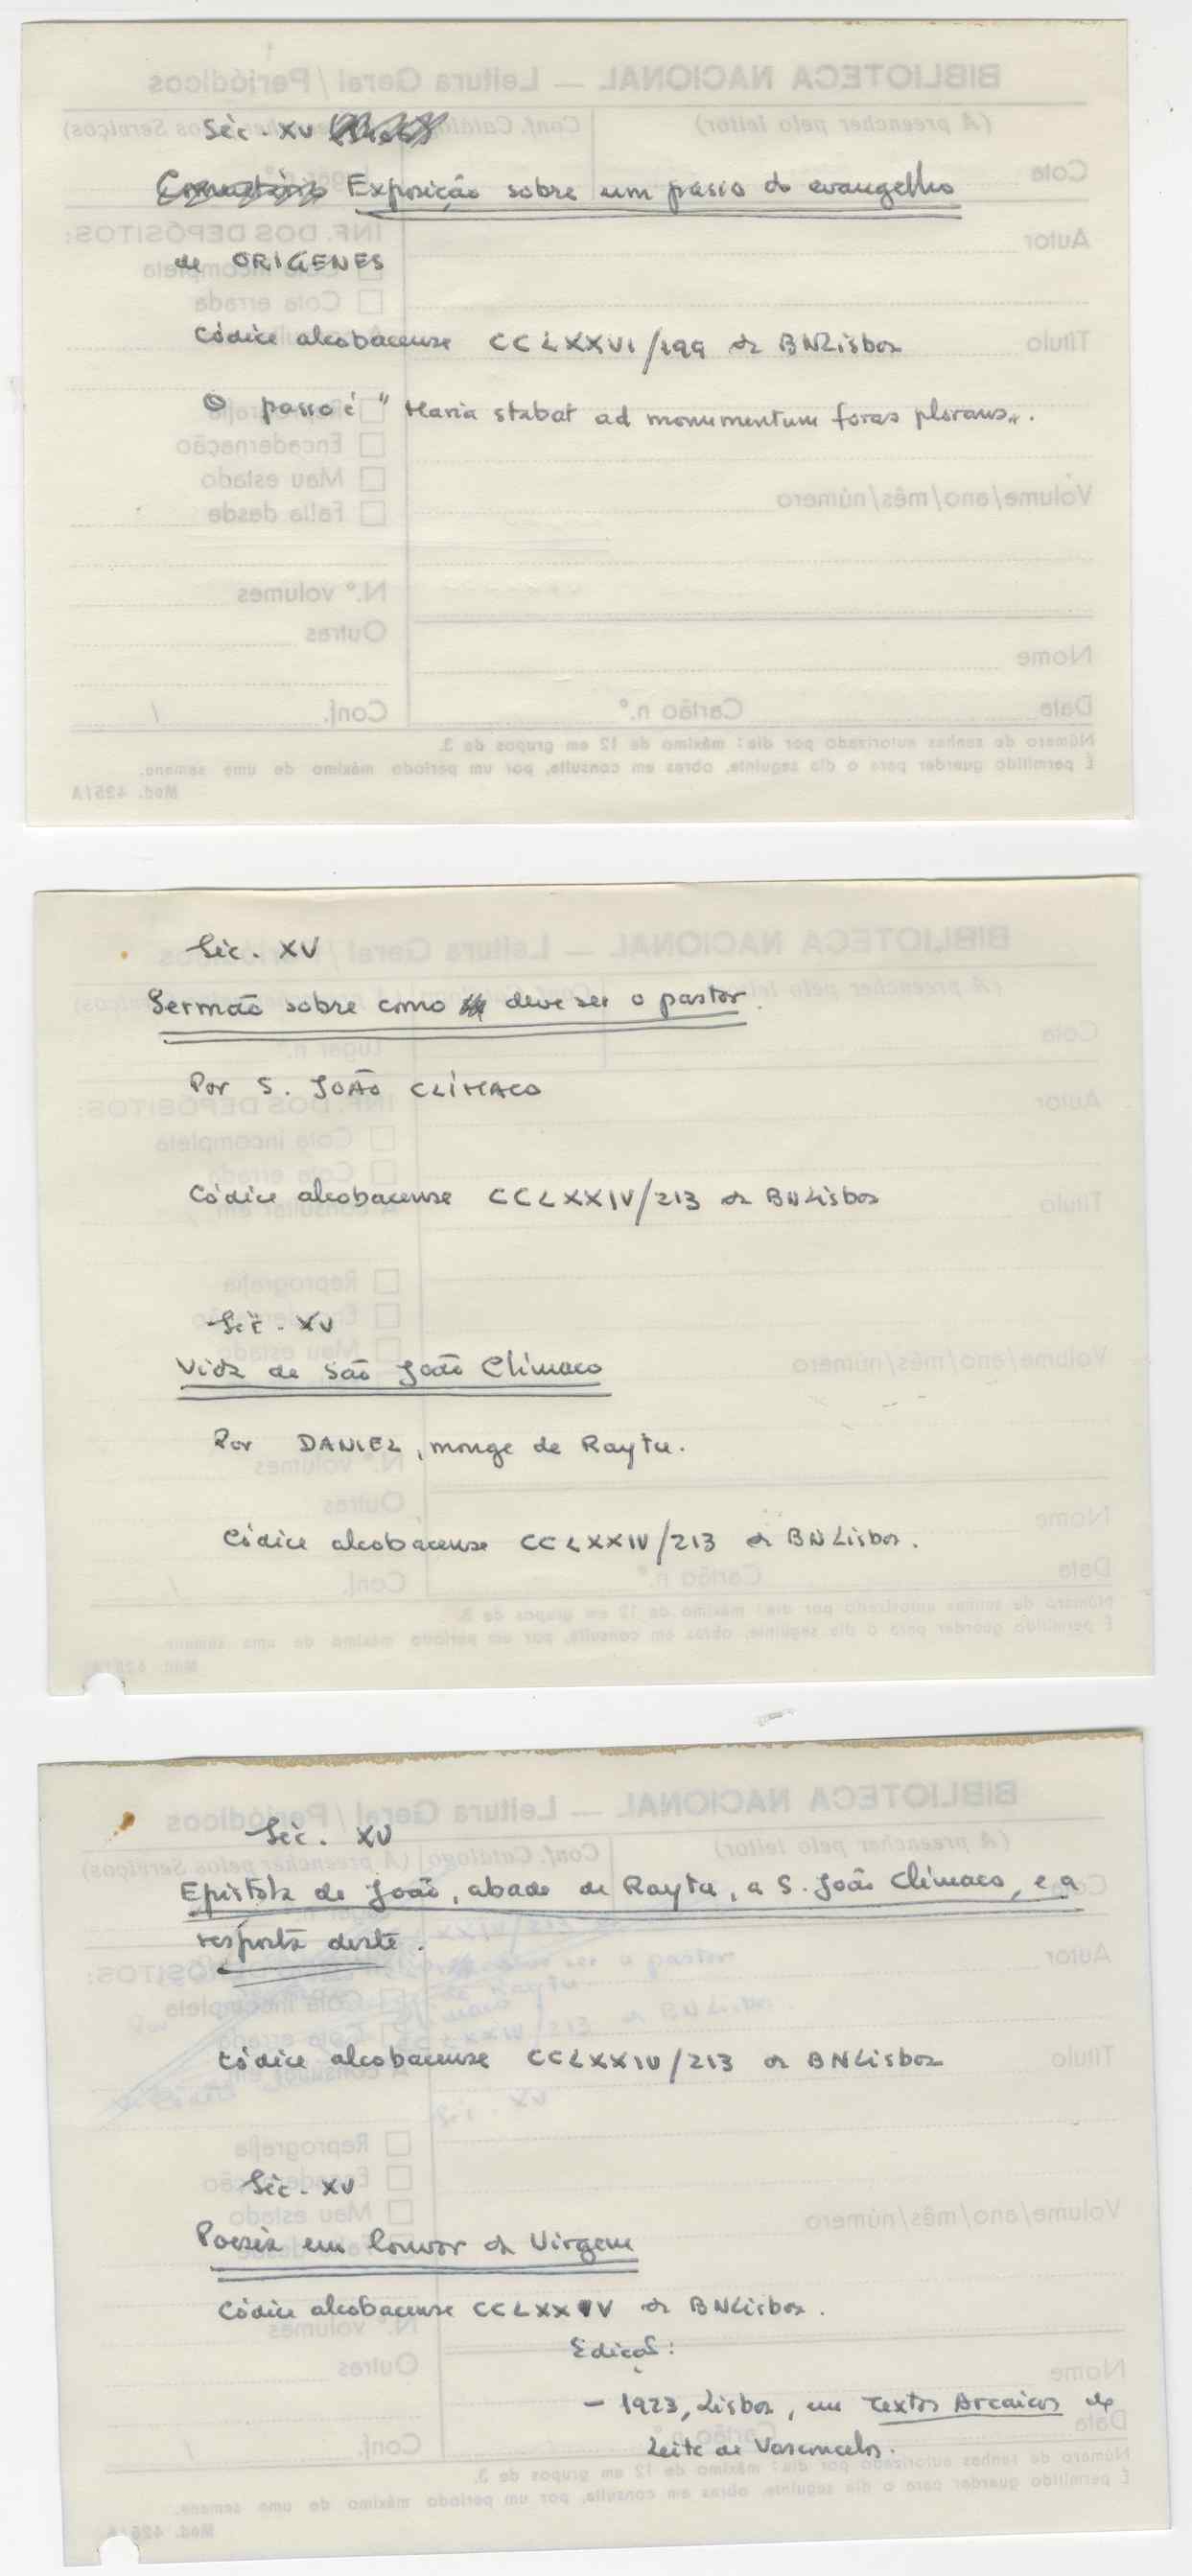 Séc. XV
Exposição sobre um passo do evangelho
de ORÍGENES
Códice alcobacense CCLXXVI/199 da BNLisboa
O passo é "Maria stabat ad monumentum foras plorans".
Séc. XV
Sermão sobre como deve ser o pastor.
Por S. JOÃO CLÍMACO
Códice alcobacense CCLXXIV/213 da BNLisboa
Séc. XV
Vida de São João Clímaco
Por DANIEL, monge de Raytu.
Códice alcobacense CCLXXIV/213 da BNLisboa.
Séc. XV
Epístola de João, abade de Raytu, a S. João Clímaco, e a
resposta deste.
Códice alcobacense CCLXXIV/213 da BNLisboa
Séc. XV
Poesia em louvor da Virgem
Códice alcobacense CCLXXIV da BNLisboa.
Edição:
- 1923, Lisboa, em Textos Arcaicos de
Leite de Vasconcelos.